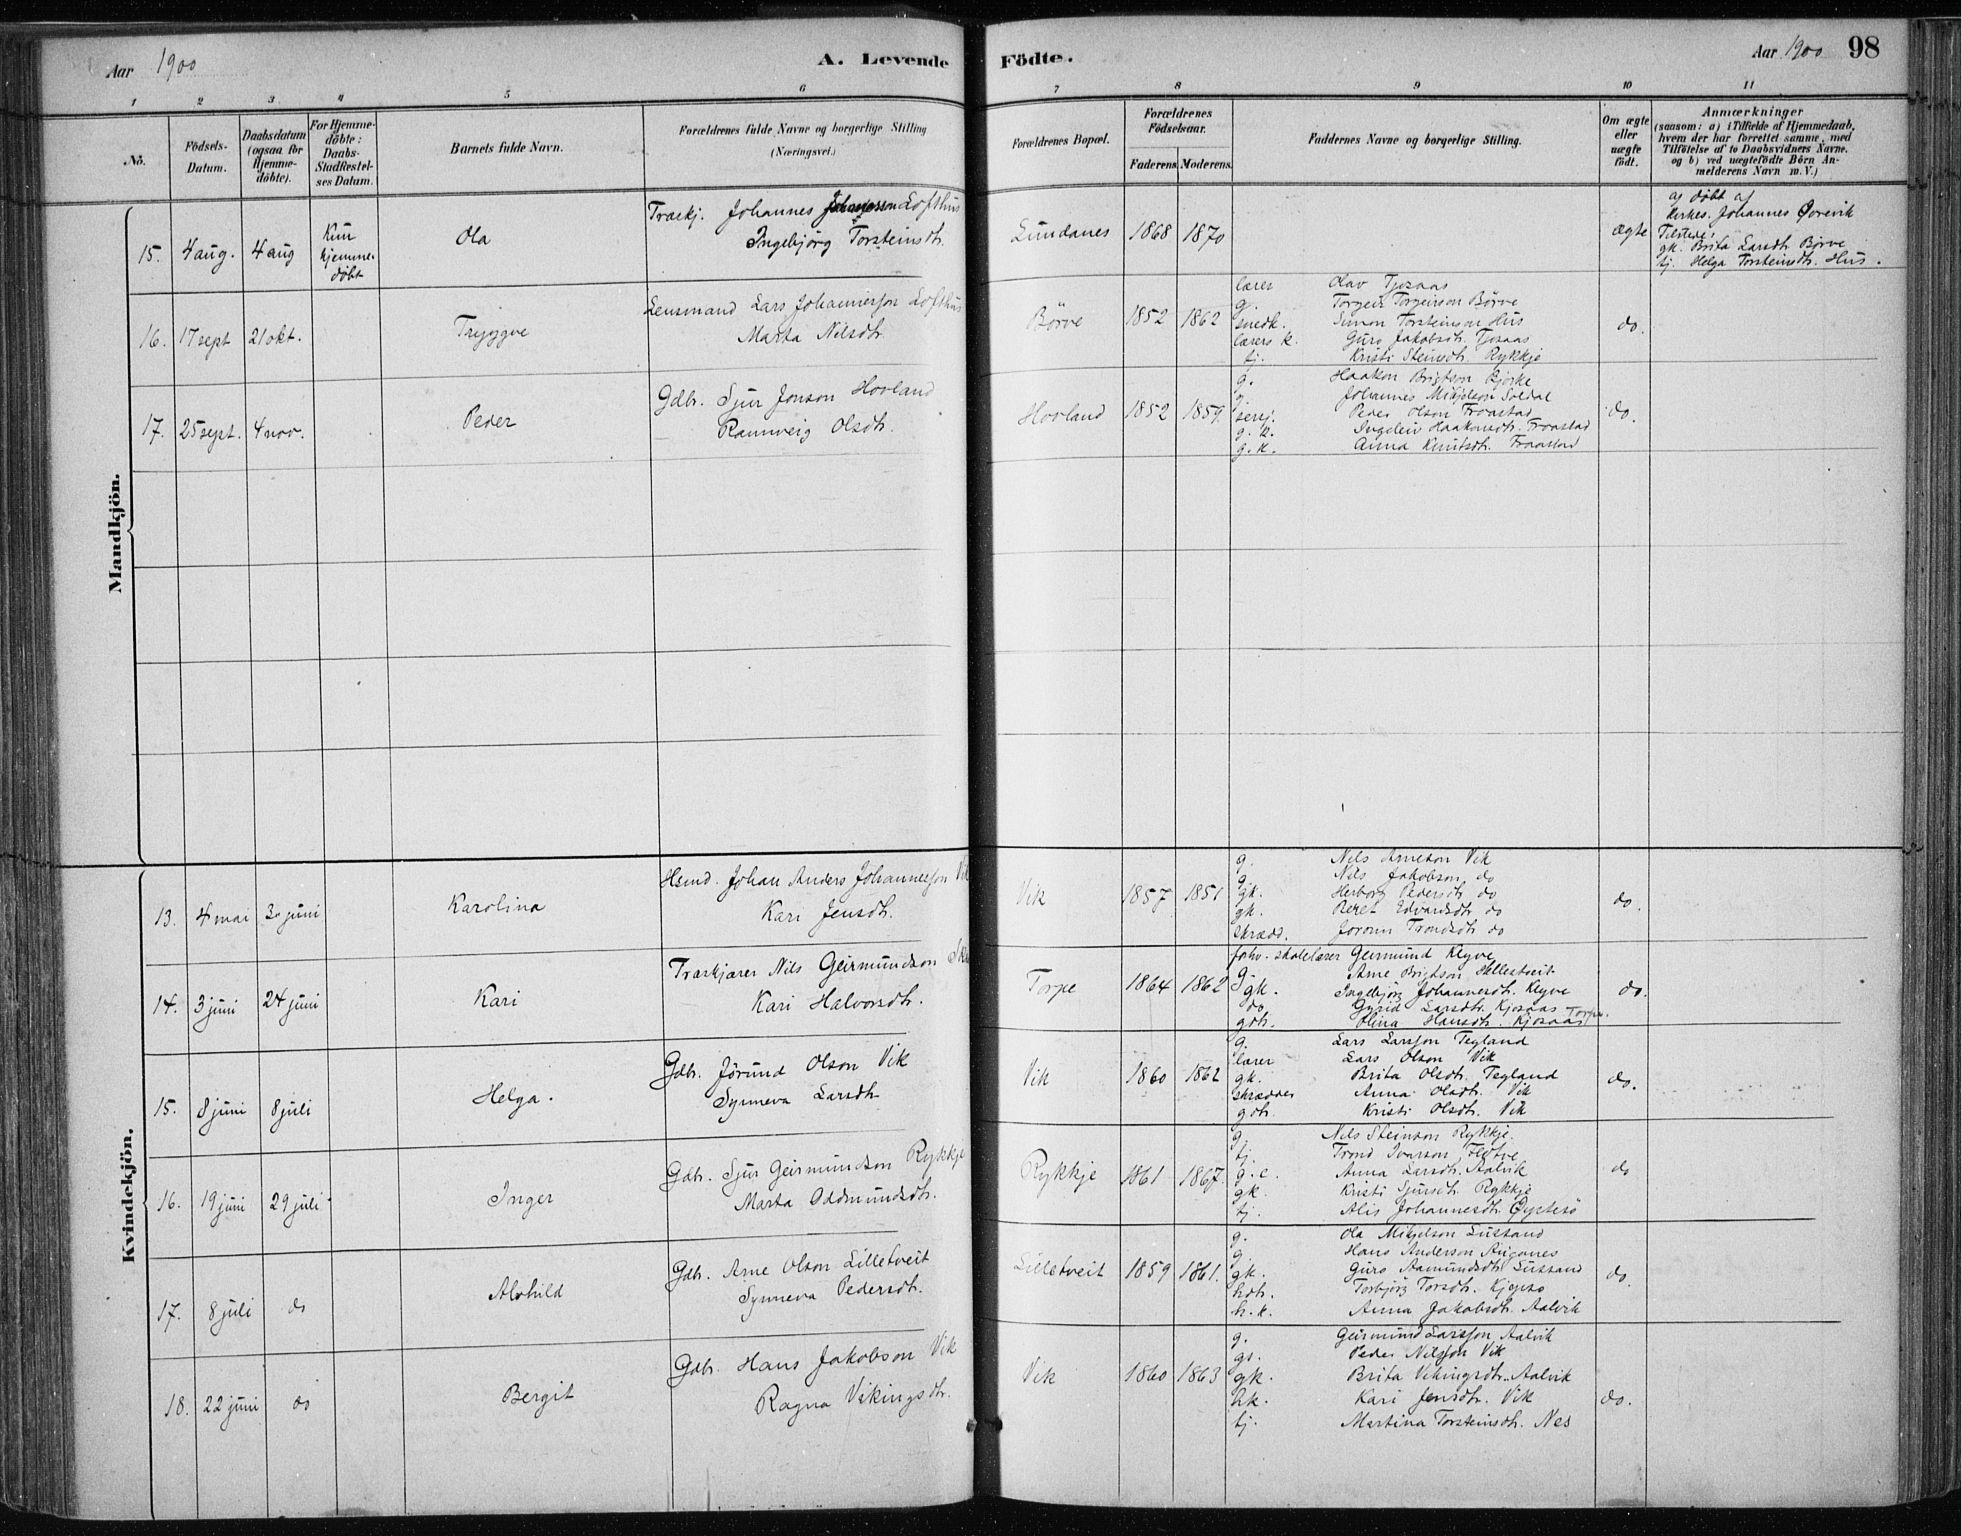 Aar 1900
A. Levende Födte.
Aar 1900 98
1 2 3 4 5 6 7 8 9 10 11
No.
Födsels-Datum.
Daabsdatum (ogsaa for Hjemme-döbte).
For Hjemme-döbte: Daabs-Stadfæstel-ses Datum.
Barnets fulde Navn.
Forældrenes fulde Navne og borgerlige Stilling (Næringsvei.)
Forældrenes Bopæl.
Forældrenes Födselsaar.
Faderens. Moderens.
Faddernes Navne og borgerlige Stilling.
Om ægte eller uægte födt.
Anmærkninger
(saasom: a) i Tilfælde af Hjemmedaab, hvem der har forrettet samme, med Tilföielse af to Daabsvidners Navne, og b) ved uægtefödte Börn Anmelderens Navn m. V.)
Mandkjön.
15. 4 aug. 4 aug Kun hjemme-døbt
Ola
Træskj. Johannes Lofthus
Ingebjörg Torsteinsdtr.
Lundanes 1868 1870
ægte
a) døbt af
Kirkes. Johannes Øvrevik
Tilstede:
gk. Brita Larsdtr. Børve
tj. Helga Torsteinsdtr. Hus.
16. 17 sept 21 okt.
Tryggve
Lensmand Lars Johannesson Lofthus
Marta Nilsdtr.
Börve 1852 1862
lærer Olav Tjosaas
g. Torgeir Torgeirson Børve
snedk. Simon Torsteinson Hus
lærers k. Guro Jakobsdtr. Tjosaas
tj. Kristi Steinsdtr. Rykkje
do.
17. 25 sept. 4 nov.
Peder
Gdbr. Sjur Jonson Hovland
Rannveig Olsdtr.
Hovland 1852 1859
g. Haakon Brigtson Bjørke
g. Johannes Mikjelson Soldal
sersj. Peder Olson Fraastad
g. k. Ingeleiv Haakonsdtr. Fraastad
g. k. Anna Knutsdtr. Fraastad
do.
Kvindekjön.
13. 4 mai 30 juni
Karolina
Hsmd. Johan Anders Johannesson Vik
Kari Jensdtr.
Vik 1857 1851
g. Nils Arneson Vik
g. Nils Jakobson do
gk. Herborg Pedersdtr. do
gk. Beret Edvardsdtr. do
skrædd. Joronn Trondsdtr. do
do.
14. 3 juni 24 juni
Kari
Træskjærer Nils Geirmundson
Kari Halvorsdtr.
Torpe 1864 1862
forhv. skolelærer Geirmund Kleyve
g. Arne Brigtson Hellestveit
gk. Ingebjörg Johannesdtr. Kleyve
do Gyrid Larsdtr. Kjosaas
gdtr. Olina Hansdtr. Kjosaas Torpe.
do.
15. 8 juni 8 juli
Helga.
Gdbr. Jörund Olson Vik
Synneva Larsdtr
Vik 1860 1862
g. Lars Larsson Tegland
lærer Lars Olson Vik
gk. Brita Olsdtr. Tegland
skrædder Anna Olsdtr. Vik
gdtr. Kristi Olsdtr. Vik
do.
16. 19 juni 29 juli
Inger
Gdbr. Sjur Geirmundson Rykkje
Marta Oddmundsdtr.
Rykkje 1861 1867.
g. Nils Steinson Rykkje.
tj. Trond Ivarson Flotve
g. e. Anna Larsdtr. Aalvik
gk. Kristi Sjursdtr. Rykkje
tj. Alis Johannesdtr. Øystesö
do
17. 8 juli do
Alvhild
Gdbr. Arne Olson Lilletveit
Synneva Pedersdtr.
Lilletveit 1859 1861.
g. Ola Mikjelson Lussand
g. Hans Anderson Augones
gk. Guro Aamundsdtr. Lussand
hdtr. Torbjörg Torsdtr. Kjepso
h. k. Anna Jakobsdtr. Aalvik
do.
18. 22 juni do
Bergit
Gdbr. Hans Jakobson Vik
Ragna Vikingsdtr.
Vik 1860 1863
g. Geirmund Larsson Aalvik
gs. Peder Nilsson Vik
gk. Brita Vikingsdtr. Aalvik
hk. Kari Jensdtr. Vik
tj. Martina Torsteinsdtr. Nes
do.